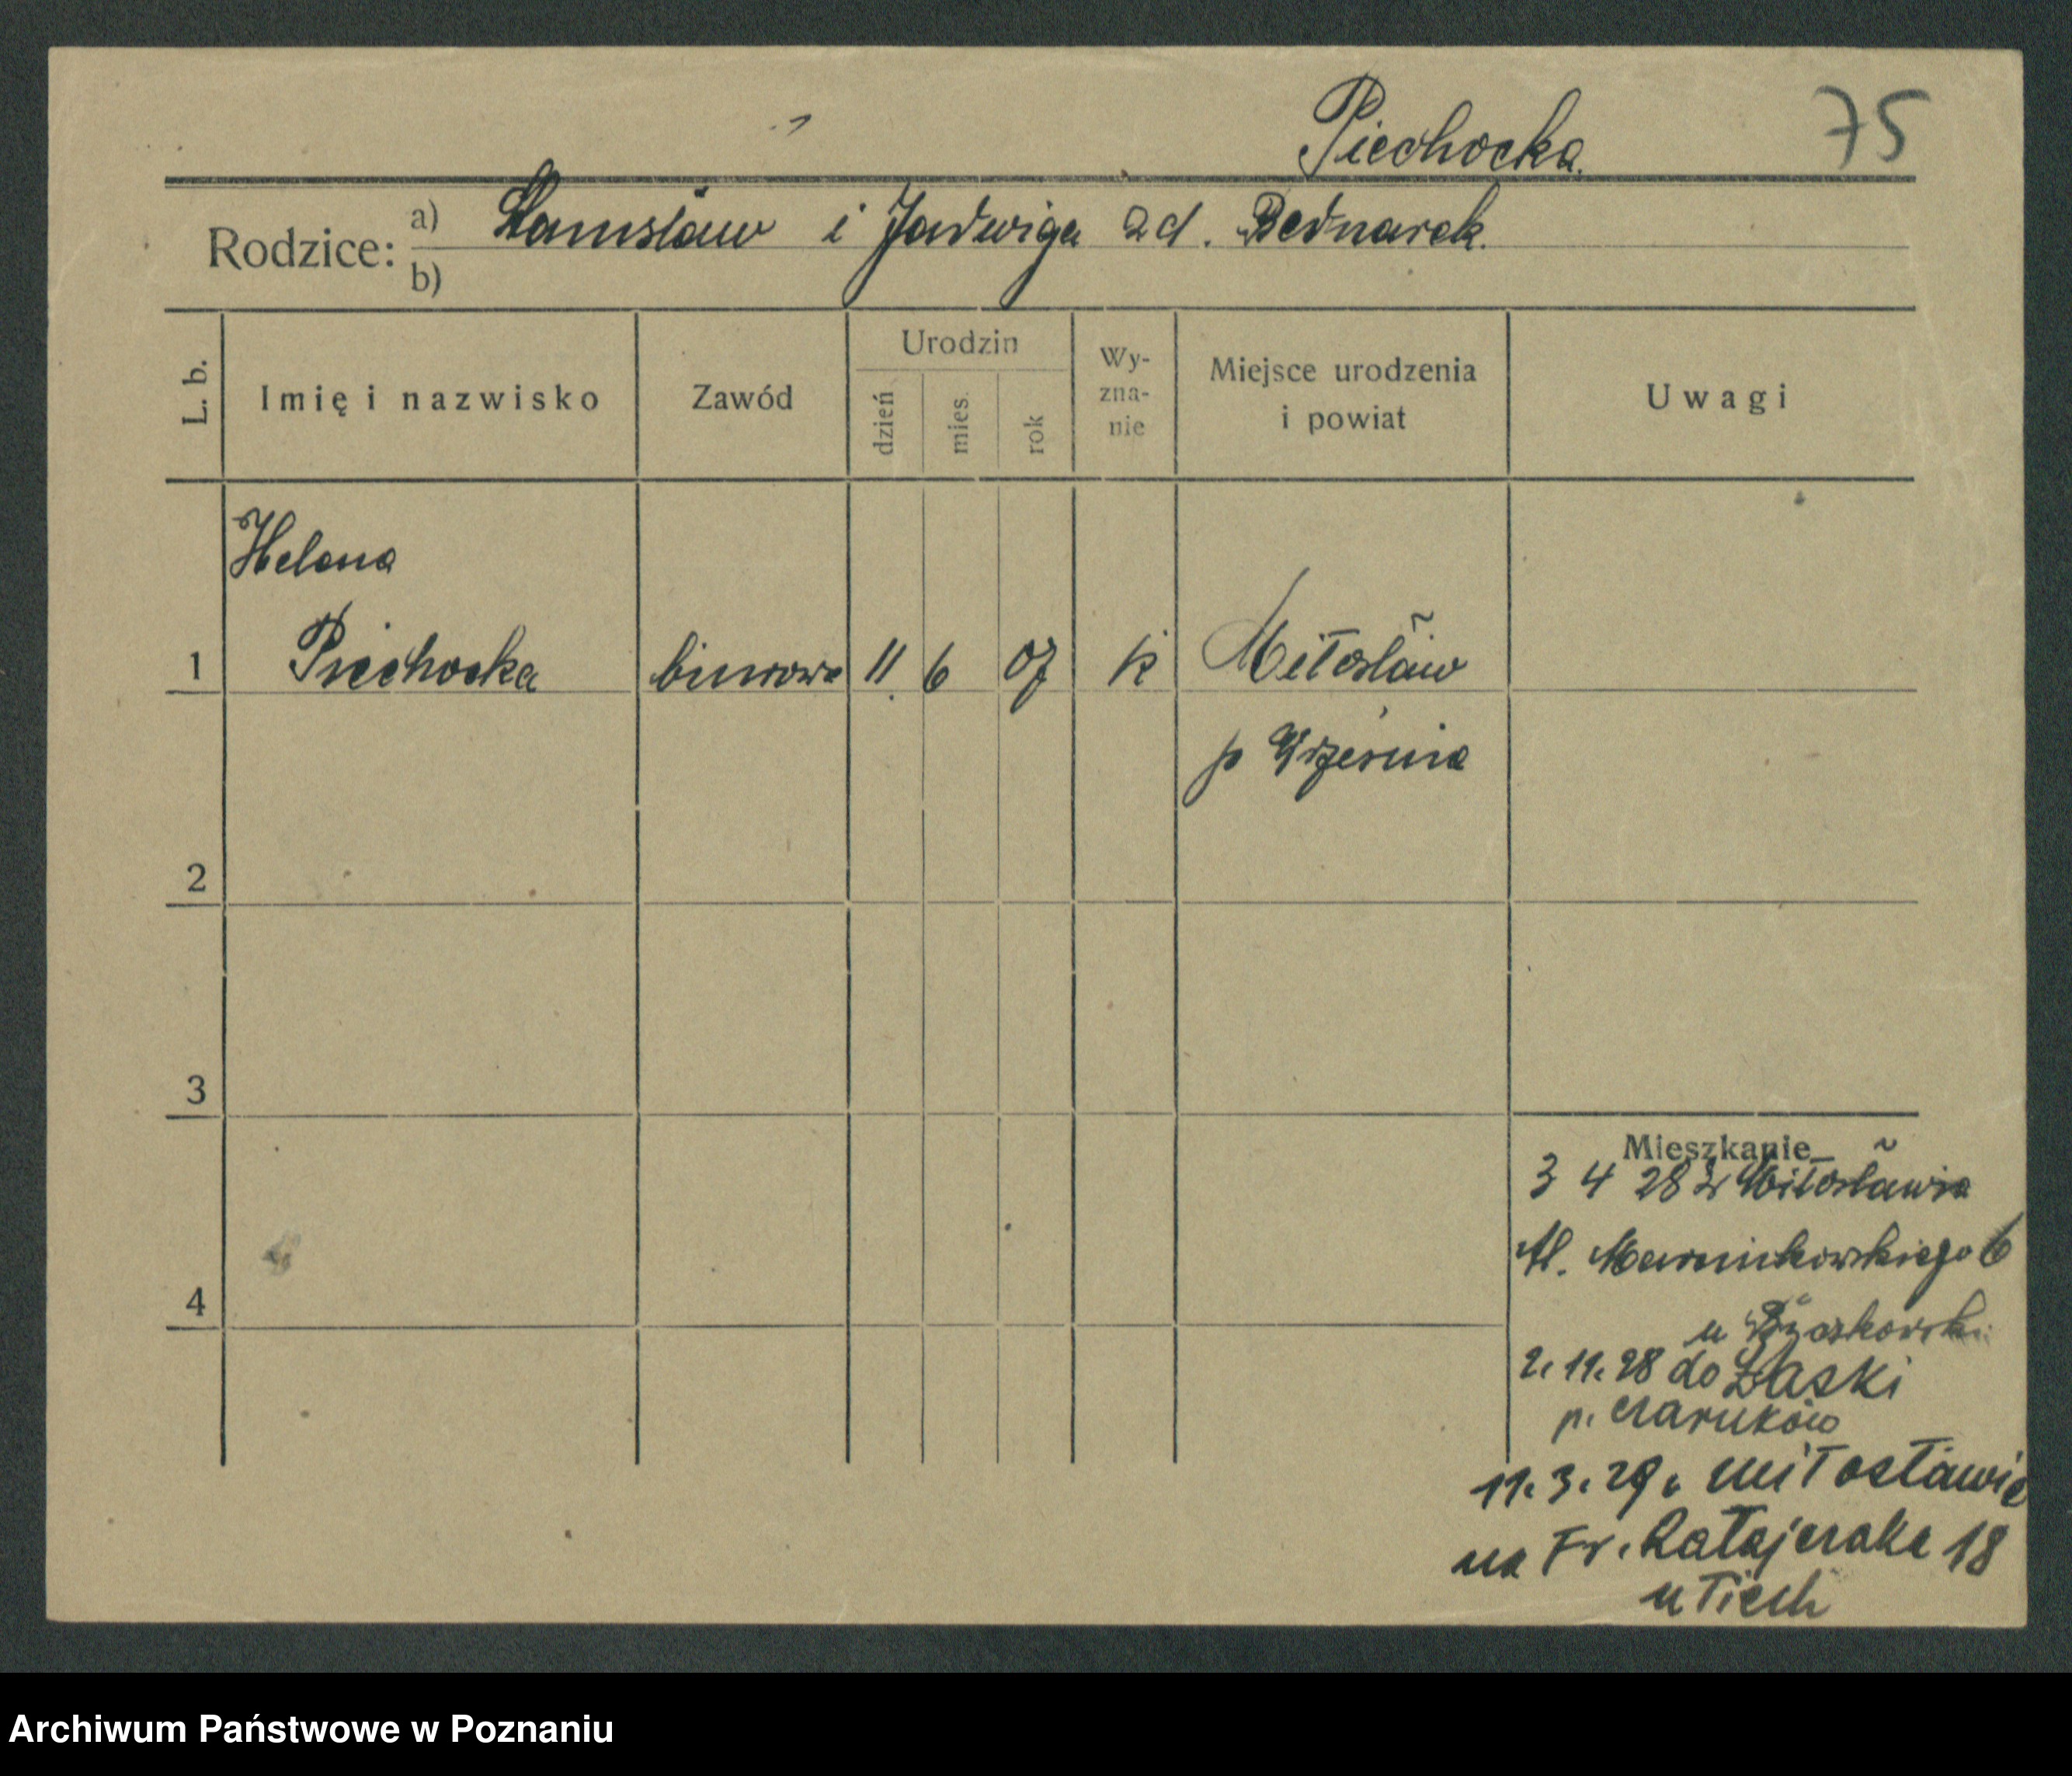 Piechocka. 75
Rodzice: a) Stanisław i Jadwiga zd. Bednarek.
b)
L. b. Imię i nazwisko Zawód Urodzin dzień mies. rok Wy-zna-nie Miejsce urodzenia i powiat Uwagi
Helena
1 Piechocka biurowa 11 6 07 k Miłosław
p Września
2
3
Mieszkanie
3 4 28 z Miłosławia
Al. Marcinkowskiego 6
4
u
2. 11. 28 do Łaski
p. Czarnków
11. 3. 29. Miłosławia
na Fr. Ratajczaka 18
u Tiech
Archiwum Państwowe w Poznaniu